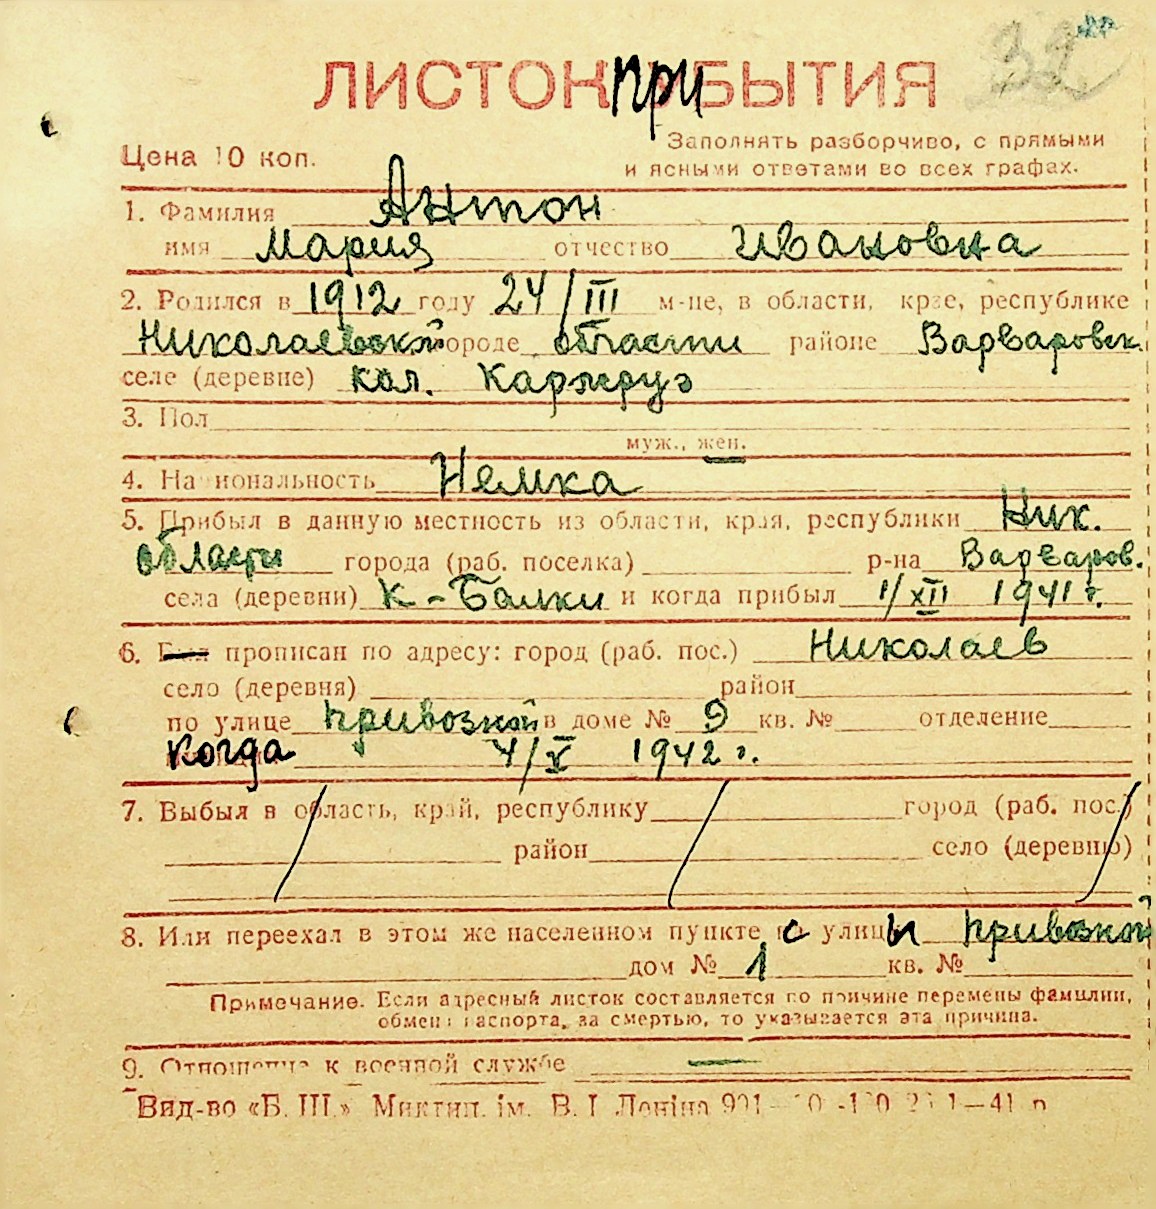 32
ЛИСТОК ПРИБЫТИЯ
Цена 10 коп.
Заполнять разборчиво, с прямыми
и ясными ответами во всех графах.
1. Фамилия Антон
имя Мария отчество Ивановна
2. Родился в 1912 году 24/III м-це, в области, крае, республике
Николаевской городе области районе Варваровск.
селе (деревне) кол. Карлсруэ
3. Пол
муж., жен.
4. Национальность Немка
5. Прибыл в данную местность из области, края, республики Ник.
области города (раб. поселка) р-на Варваров.
села (деревни) К-Балки и когда прибыл 1/XII 1941 г.
6. прописан по адресу: город (раб. пос.) Николаев
село (деревня) район
по улице Привозной в доме № 9 кв. № отделение
когда 4/V 1942 г.
7. Выбыл в область, край, республику город (раб. пос.)
район село (деревню)
8. Или переехал в этом же населенном пункте с улицы Привозной
дом № 1 кв. №
Примечание. Если адресный листок составляется по причине перемены фамилии,
обмена паспорта, за смертью, то указывается эта причина.
9. Отношение к военной службе —
Вид-во «Б. Ш.» Миктип. ім. В. І Леніна